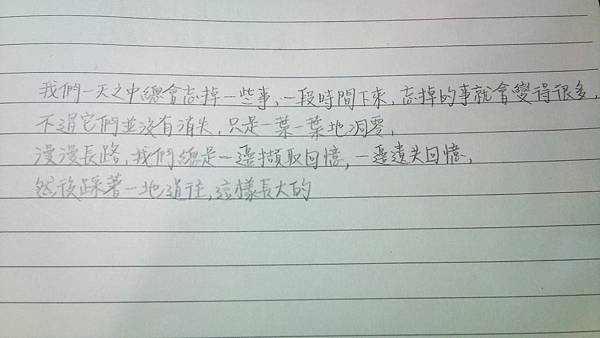 我們一天之中總會忘掉一些事,一段時間下來,忘掉的事就會變得很多,
不過它們並沒有消失,只是一葉一葉地凋零,
漫漫長路,我們總是一邊擷取回憶,一邊遺失回憶,
然後踩著一地過往,這樣長大的